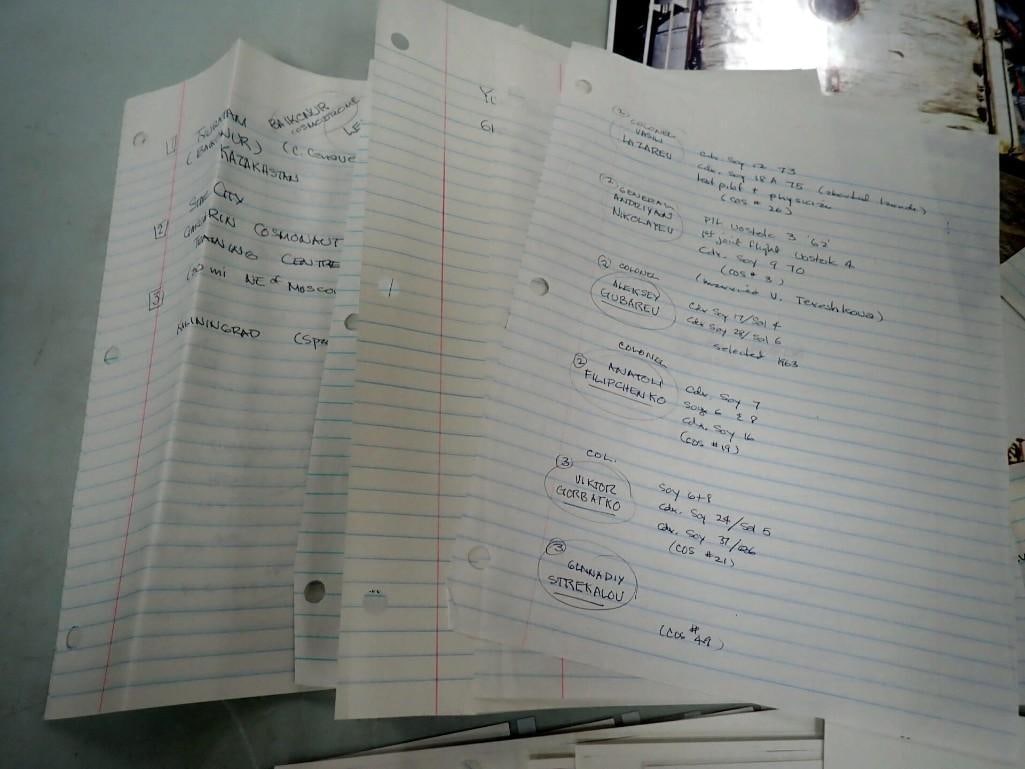 [1] TYURATAM BAIKONUR
COSMODROME
(BAIKONUR) (C. CANAVE
LE
KAZAKHSTAN
STAR CITY
[2] GAGARIN COSMONAUT
TRAINING CENTRE
(20 mi NE of MOSCOW
[3]
KALININGRAD (Spa
61
(2) COLONEL
VASILI
LAZAREV
Cdr. Soy 12 73
Cdr. Soy 18A 75 (aborted launch)
test pilot + physician
(cos # 26)
(2) GENERAL
ANDRIYAN
NIKOLAYEV
Plt. Vostok 3 '62
1st joint flight Vostok 4
Cdr. Soy 9 70
(cos # 3)
(married V. Tereshkova)
(2) COLONEL
ALEKSEY
GUBAREV
Cdr Soy 17/Sal 4
Cdr Soy 28/Sal 6
selected 1963
COLONEL
(2) ANATOLI
FILIPCHENKO
Cdr. Soy 7
Soyz 6 & 8
Cdr. Soy 16
(COS #19)
COL.
(3) VIKTOR
GORBATKO
Soy 6+8
Cdr. Soy 24/Sal 5
Cdr. Soy 37/626
(COS #21)
(3) GENNADIY
STREKALOV
(COS #49)